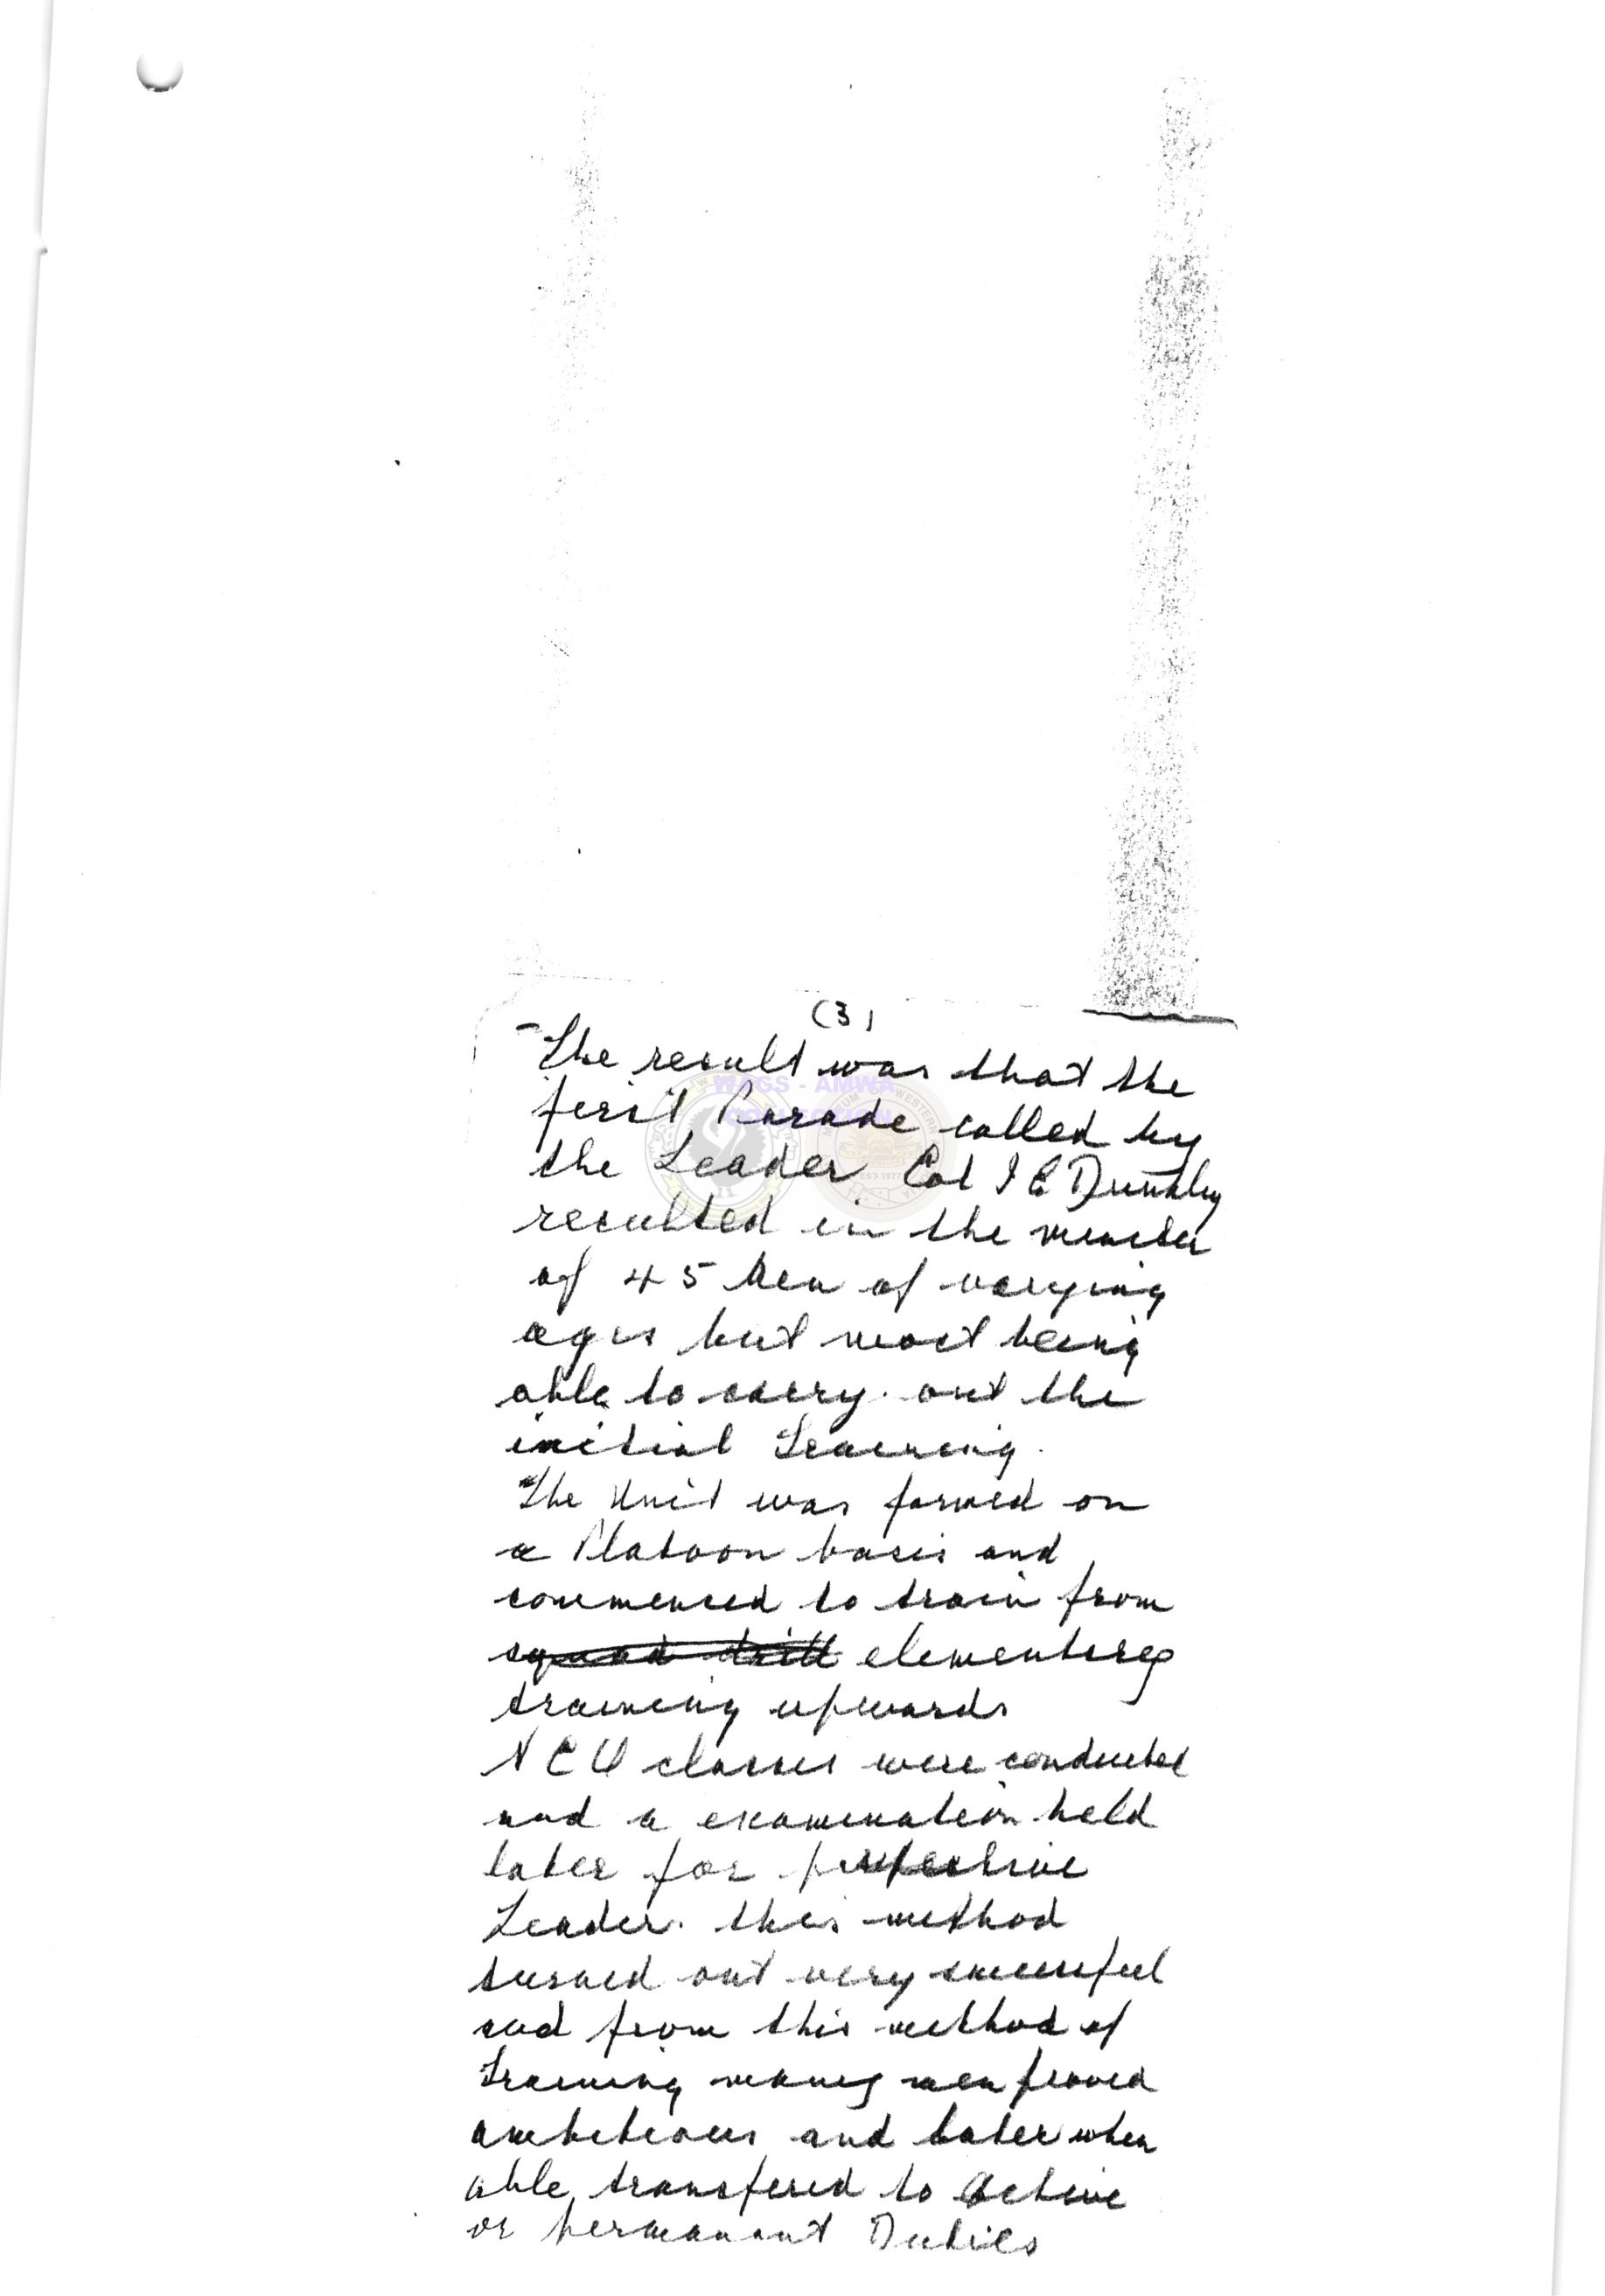 (3)
The result was that the
first Parade called by
the Leader Col I E Dunkley
resulted in the muster
of 45 Men of varying
ages but most being
able to carry out the
initial Training.
The Unit was formed on
a Platoon basis and
commenced to train from
squad drill elementary
training upwards
N C O classes were conducted
and a examination held
later for
Leader. this method
turned out very successful
and from this method of
Training many men proved
ambitious and later when
able, transfered to Active
or permanant Duties
WAGS - AMWA
COLLECTION